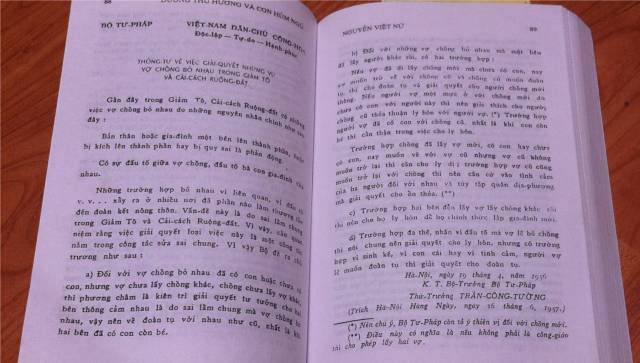 88 DƯƠNG THU HƯƠNG VÀ CON HÙM NGỦ
BỘ TƯ-PHÁP VIỆT-NAM DÂN-CHỦ CỘNG-HÒA
Độc-lập — Tự-do — Hạnh-phúc
THÔNG-TƯ VỀ VIỆC GIẢI-QUYẾT NHỮNG VỤ
VỢ CHỒNG BỎ NHAU TRONG GIẢM TÔ
VÀ CẢI-CÁCH RUỘNG-ĐẤT
Gần đây trong Giảm Tô, Cải-cách Ruộng-đất có những
việc vợ chồng bỏ nhau do những nguyên nhân chính như sau
đây :
Bản thân hoặc gia-đình một bên lên thành phần, hoặc
bị kích lên thành phần hay bị quy sai là phản động.
Có sự đấu tố giữa vợ chồng, đấu tố bà con gia-đình
nhau.
Những trường hợp bỏ nhau vì liên quan, vì đấu tố
v. v... xảy ra ở nhiều nơi đã phần nào làm thương tổn
đến đoàn kết nông thôn. Vấn-đề này là do sai lầm chung
trong Giảm Tô và Cải-cách Ruộng-đất. Vì vậy, cần quan
niệm rằng việc giải quyết loại việc này là một công tác
nằm trong công tác sửa sai chung. Vì vậy Bộ đề ra chủ
trương như sau :
a) Đối với vợ chồng bỏ nhau đã có con hoặc chưa có
con, nhưng vợ chưa lấy chồng khác, chồng chưa lấy vợ khác
thì phương châm là kiên trì giải quyết tư tưởng cho hai
bên thông cảm nhau là do sai lầm chung mà vợ chồng bỏ
nhau, vậy nên về đoàn tụ với nhau như cũ, nhất là khi
hai bên đã có con còn bé.
NGUYỄN VIỆT NỮ 89
b) Đối với những vợ chồng bỏ nhau mà một bên
đã lấy người khác rồi, có hai trường hợp :
Nếu vợ đã đi lấy chồng mới mà chưa có con, nay
vợ muốn trở về với chồng cũ và chồng cũ muốn đoàn
tụ thì cho đoàn tụ và giải quyết cho người chồng mới
thông. Nếu người vợ một mực ở với chồng mới dù
chưa có con với người này thì nên giải thích cho người
chồng cũ thỏa thuận ly hôn với người vợ. (*) Trường hợp
người vợ đã có con với chồng cũ, nhất là khi con còn
bé thì cần thận trọng trong việc cho ly hôn.
Trường hợp chồng đã lấy vợ mới, có con hay chưa
có con, nay muốn về với vợ cũ nhưng vợ cũ không
muốn trở lại thì cần cho ly dị; trường hợp vợ cũ cũng
muốn trở lại với chồng thì nên căn cứ vào tình cảm
của ba người đối với nhau và tùy tập quán địa-phương
mà giải quyết cho ổn thỏa. (**)
c) Trường hợp hai bên đều lấy vợ lấy chồng khác rồi
thì nên cho họ ly hôn để họ chính thức lập gia-đình mới.
d) Trường hợp đa thê, nhân vì đấu tố mà vợ lẽ bỏ chồng
thì nói chung nên giải quyết cho ly hôn, nhưng có trường
hợp vì sinh kế, vì con cái hay vì tình cảm, người vợ
lẽ muốn đoàn tụ thì giải quyết cho đoàn tụ.
Hà-Nội, ngày 19 tháng 4, năm 1956
K. T. Bộ-Trưởng Bộ Tư-Pháp
Thứ-Trưởng TRẦN-CÔNG-TƯỜNG
(Trích Hà-Nội Hàng Ngày, ngày 16 tháng 6, 1957.)
(*) Nên chú ý, Bộ Tư-Pháp còn tỏ ý thiên vị đối với chồng mới.
(**) Điều này có nghĩa là nếu không phải là công-giáo
thì cho phép lấy hai vợ.